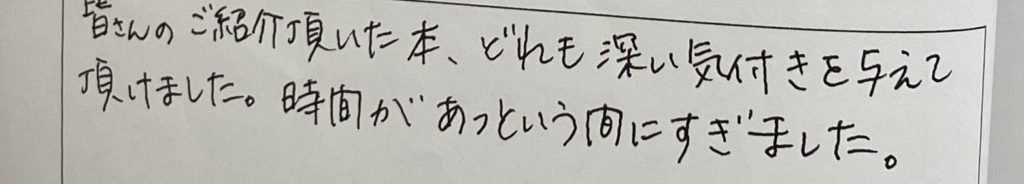 皆さんのご紹介頂いた本、どれも深い気付きを与えて
頂けました。時間があっという間にすぎました。